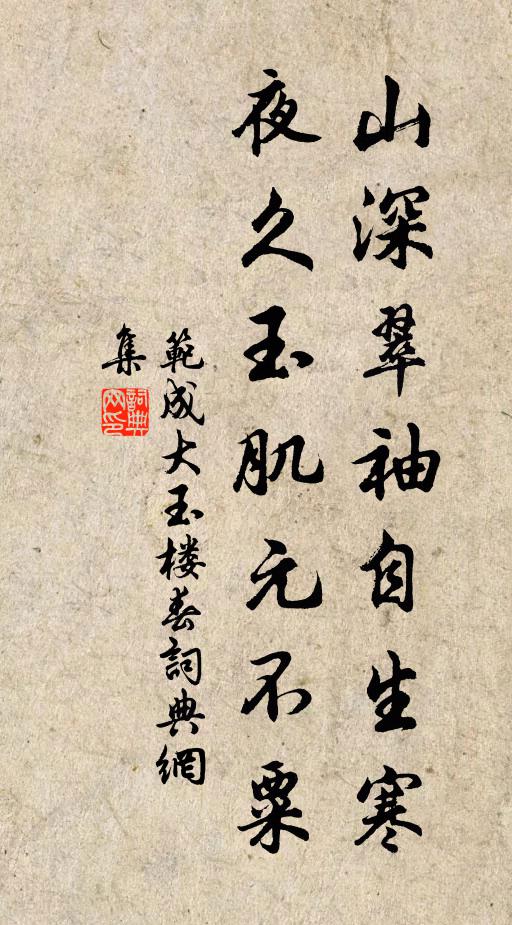 山深翠袖自生寒
夜久玉肌元不粟
範成大玉楼春詞典網
集
詞典
网印